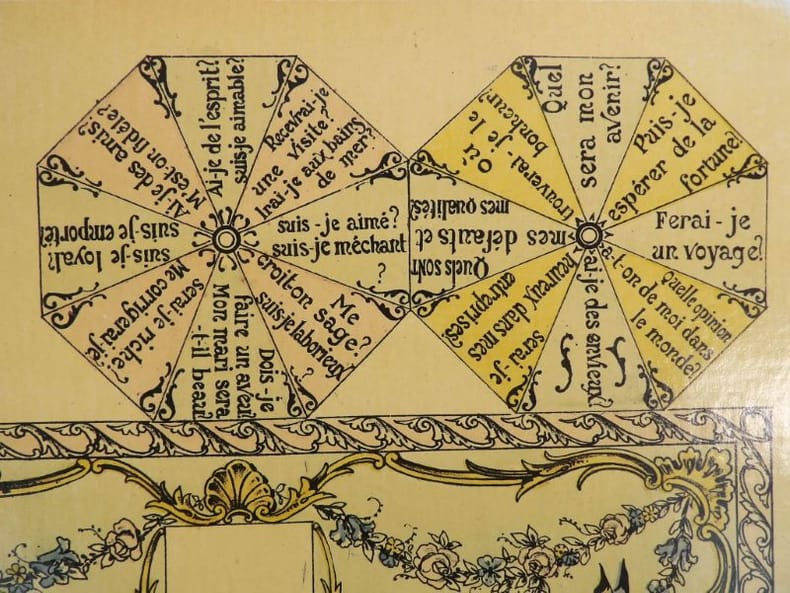 Ai-je de l'esprit?
suis-je aimable?
Recevrai-je
une visite?
Irai-je aux bains
de mer?
suis-je aimé?
suis-je méchant
?
Me
croit on sage?
suis-je laborieux
?
Dois-je
faire un aveu
Mon mari sera
-t-il beau
Me corrigerai-je
serai-je riche
suis-je loyal?
suis-je emporté?
Ai-je des amis?
M'est-on fidèle?
Quel
sera mon
avenir?
Puis-je
espérer de la
fortune?
Ferai-je
un voyage?
Quelle opinion
a-t-on de moi dans
le monde?
ai je des envieux?
serai-je
heureux dans mes
entreprises
Quels sont
mes défauts et
mes qualités
Où
trouverai-je le
bonheur?